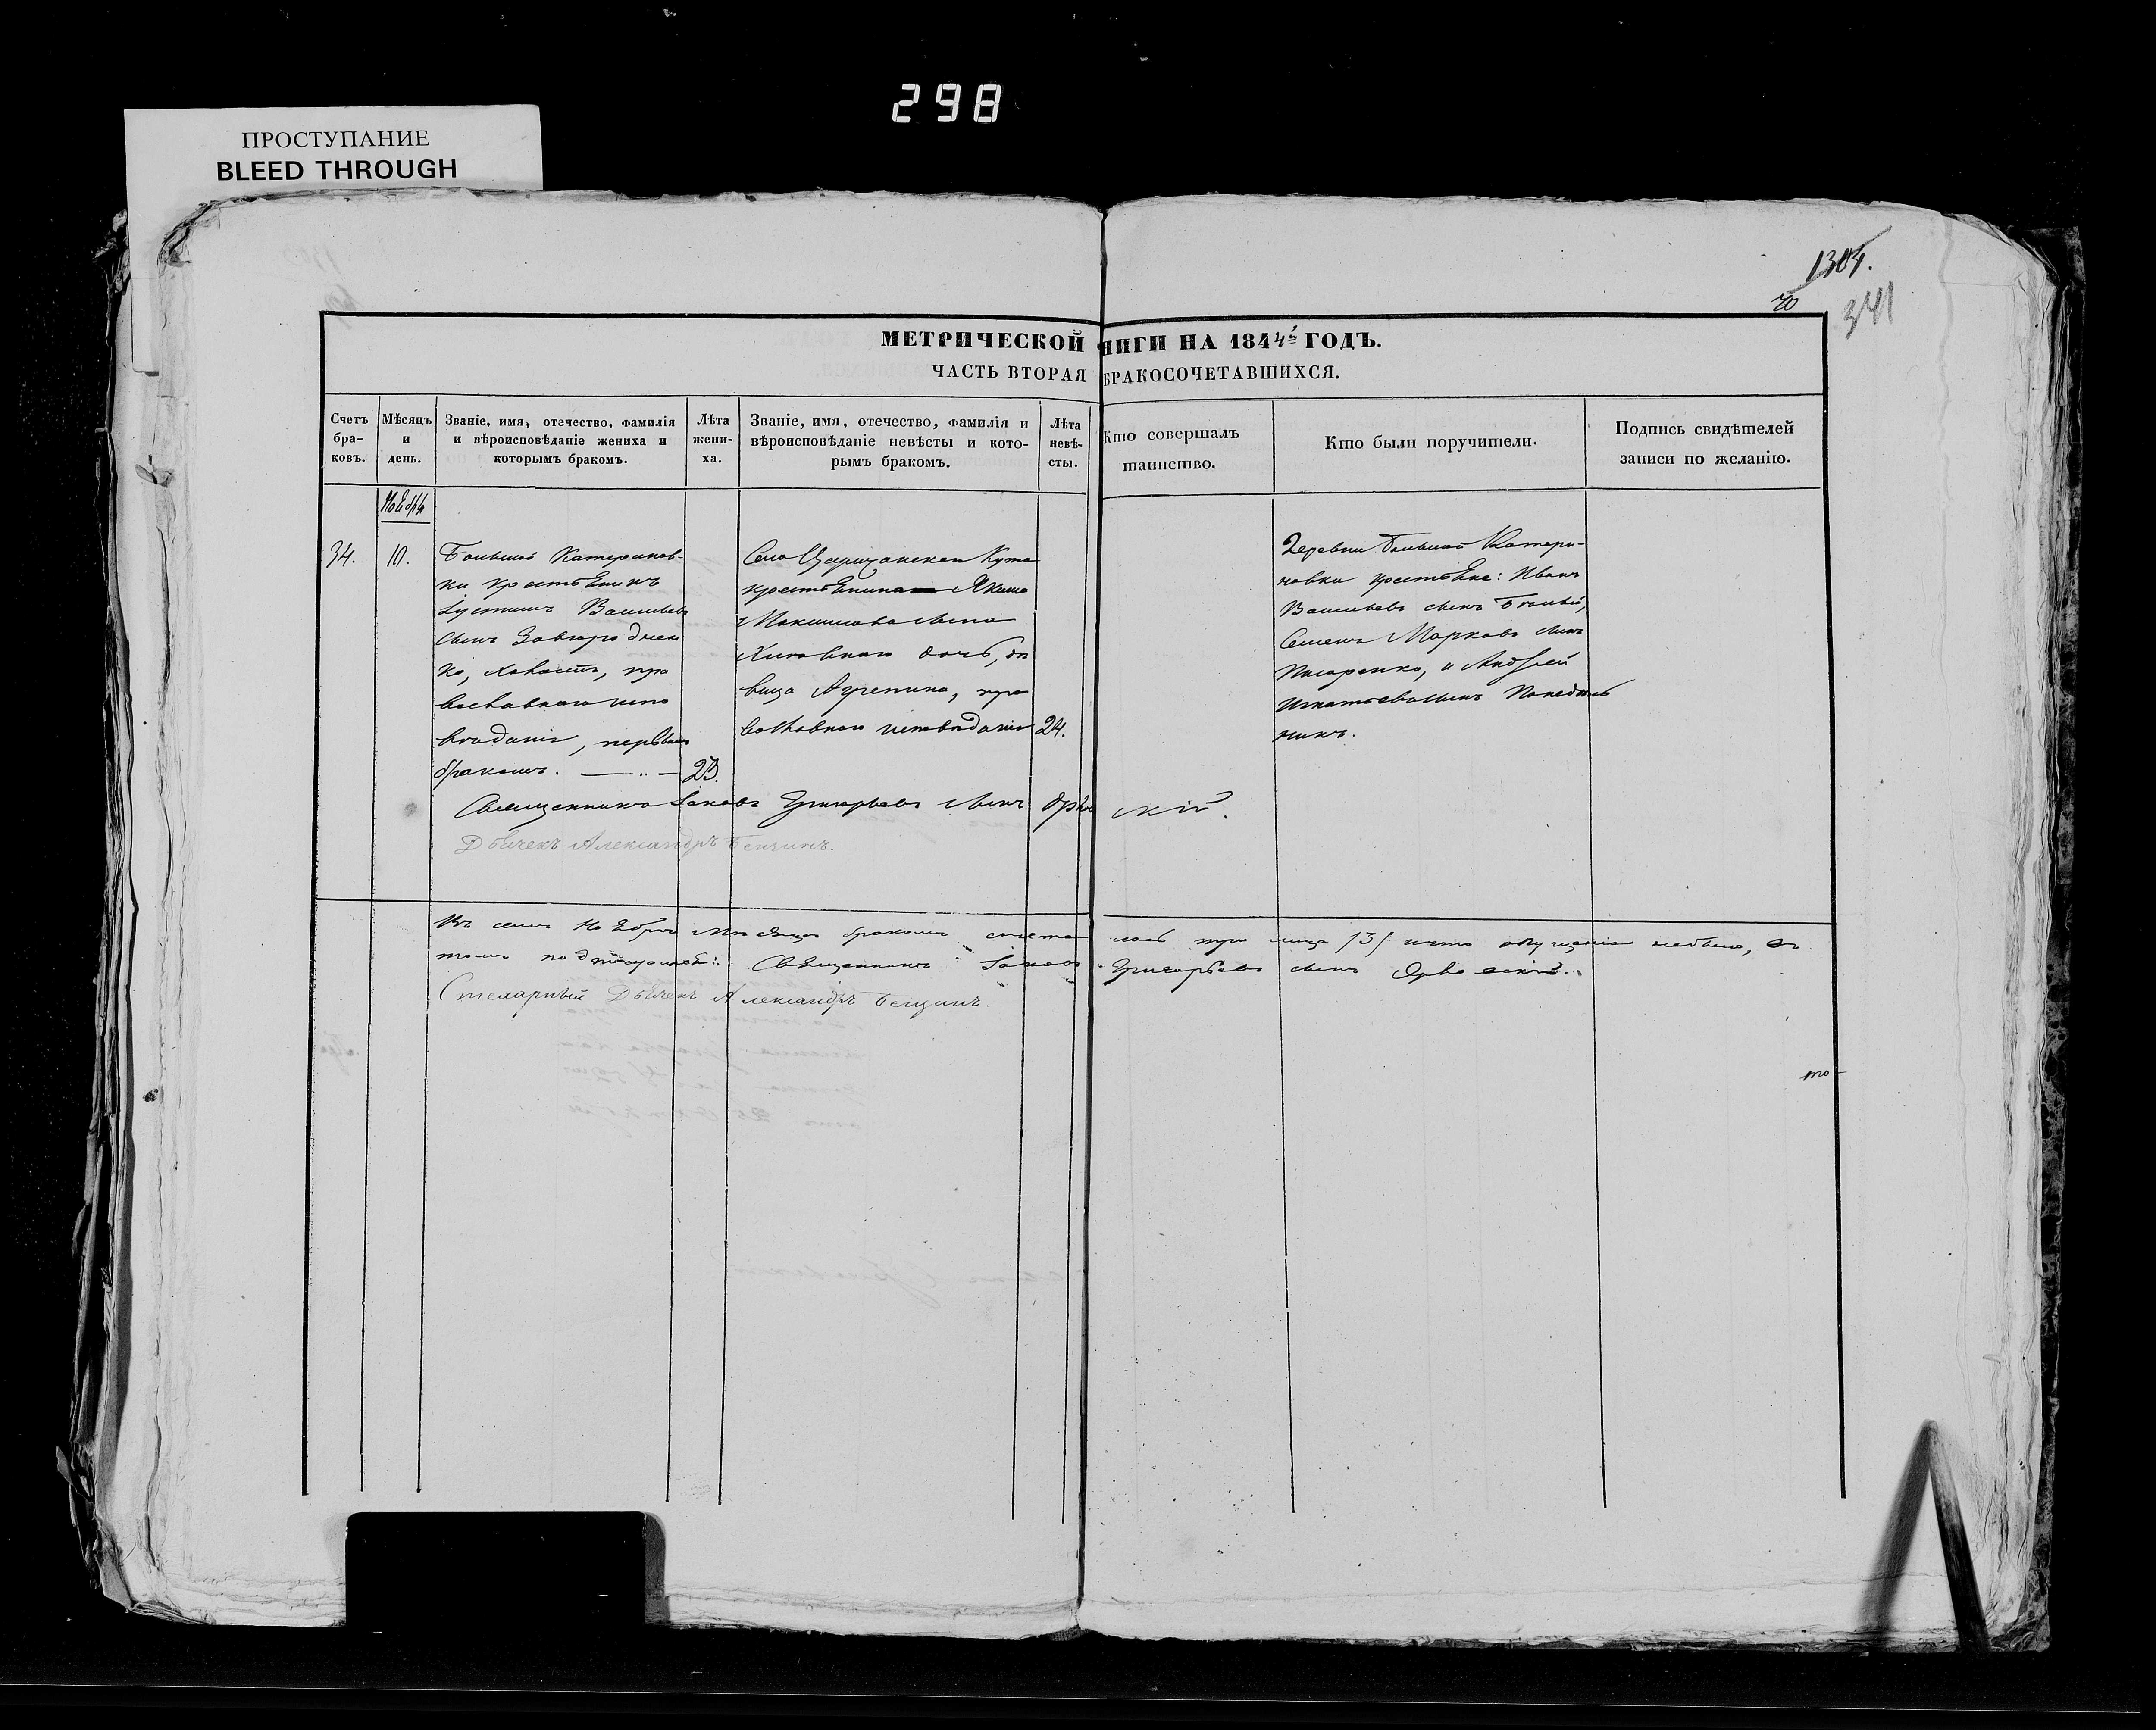 298
ПРОСТУПАНИЕ
BLEED THROUGH
1304.
70
341
МЕТРИЧЕСКОЙ НИГИ НА 1844й ГОДЪ.
ЧАСТЬ ВТОРАЯ БРАКОСОЧЕТАВШИХСЯ.
Счетъ бра- ковъ.
Мѣсяцъ и день.
Званіе, имя, отечество, фамилія и вѣроисповѣданіе жениха и которымъ бракомъ.
Лѣта жени- ха.
Званіе, имя, отечество, фамилія и вѣроисповѣданіе невѣсты и кото- рымъ бракомъ.
Лѣта невѣ- сты.
Кто совершалъ таинство.
Кто были поручители.
Подпись свидѣтелей записи по желанію.
Ноября
34.
10.
Большой Катеринов-
ки крестьянинъ
Іустинъ Васильевъ
сынъ Завгороднен
ко, холостъ, пра
вославнаго испо
вѣданія, первымъ
бракомъ.
23.
Села Царичанская Кута
крестьянина Якима
Максимова сына
дочь, дѣ
вица Агрепина, пра
вославнаго исповѣданія
24.
Деревни Большой Катери-
новки крестьяне: Иванъ
Васильевъ сынъ Білый,
Семенъ Марковъ сынъ
Писаренко, и Андрей
Игнатьевъ сынъ
никъ.
Священникъ Іаковъ Григорьевъ сынъ
скій.
Дьячекъ Александръ Бенцинъ.
Въ семъ Ноябрѣ мѣсяцѣ бракомъ сочета лось три лица /3/ и что опущенія небыло, въ
томъ подписуемся: Священникъ Іаковъ Григорьевъ сынъ
Стихарный Дьячекъ Александръ Бенцинъ.
то